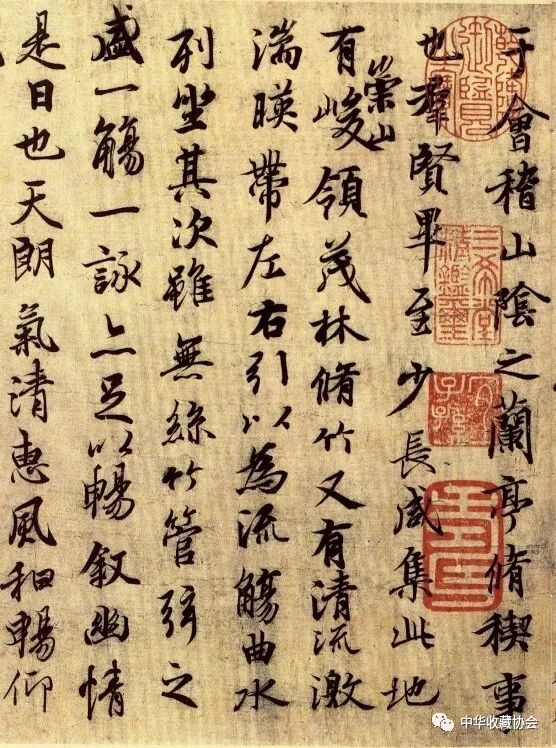 于會稽山陰之蘭亭脩稧事
也羣賢畢至少長咸集此地
有崇山峻領茂林脩竹又有清流激
湍暎帶左右引以為流觴曲水
列坐其次雖無絲竹管弦之
盛一觴一詠亦足以暢叙幽情
是日也天朗氣清惠風和暢仰
三希堂精鑑璽
宜子孫
中华收藏协会